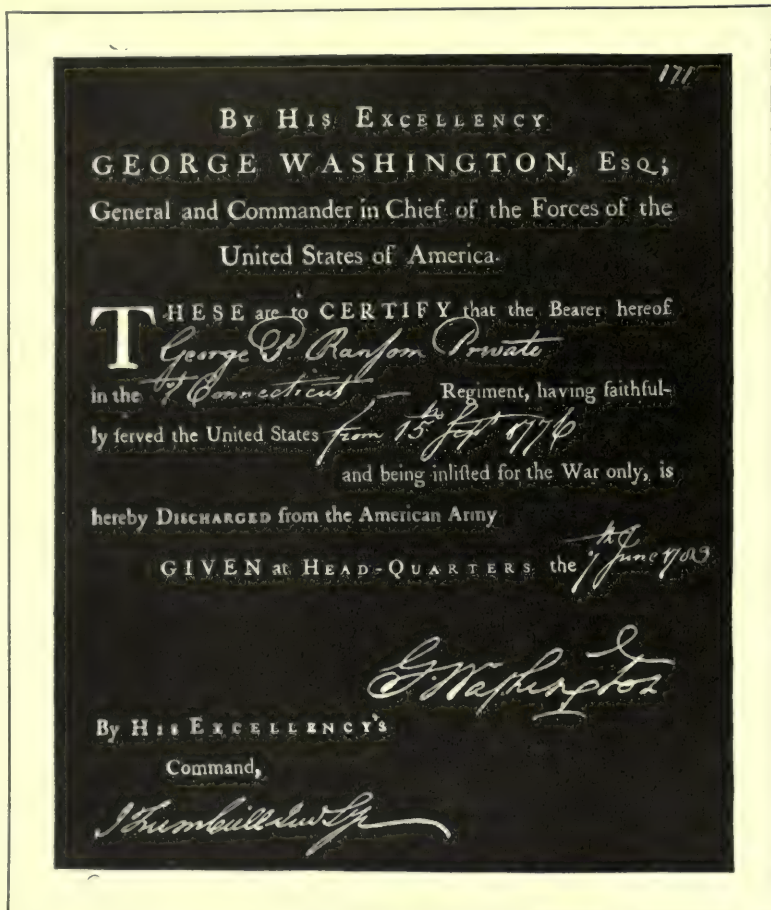 171
BY HIS EXCELLENCY
GEORGE WASHINGTON, ESQ;
General and Commander in Chief of the Forces of the
United States of America.
THESE are to CERTIFY that the Bearer hereof
George P Ranſom Private
in the Connecticut — Regiment, having faithful-
ly ſerved the United States from 15th Sept 1776
and being inliſted for the War only, is
hereby DISCHARGED from the American Army
GIVEN at HEAD-QUARTERS the 7th June 1783
G. Waſhington
By HIS EXCELLENCY's
Command,
J Trumbull Jun Sy